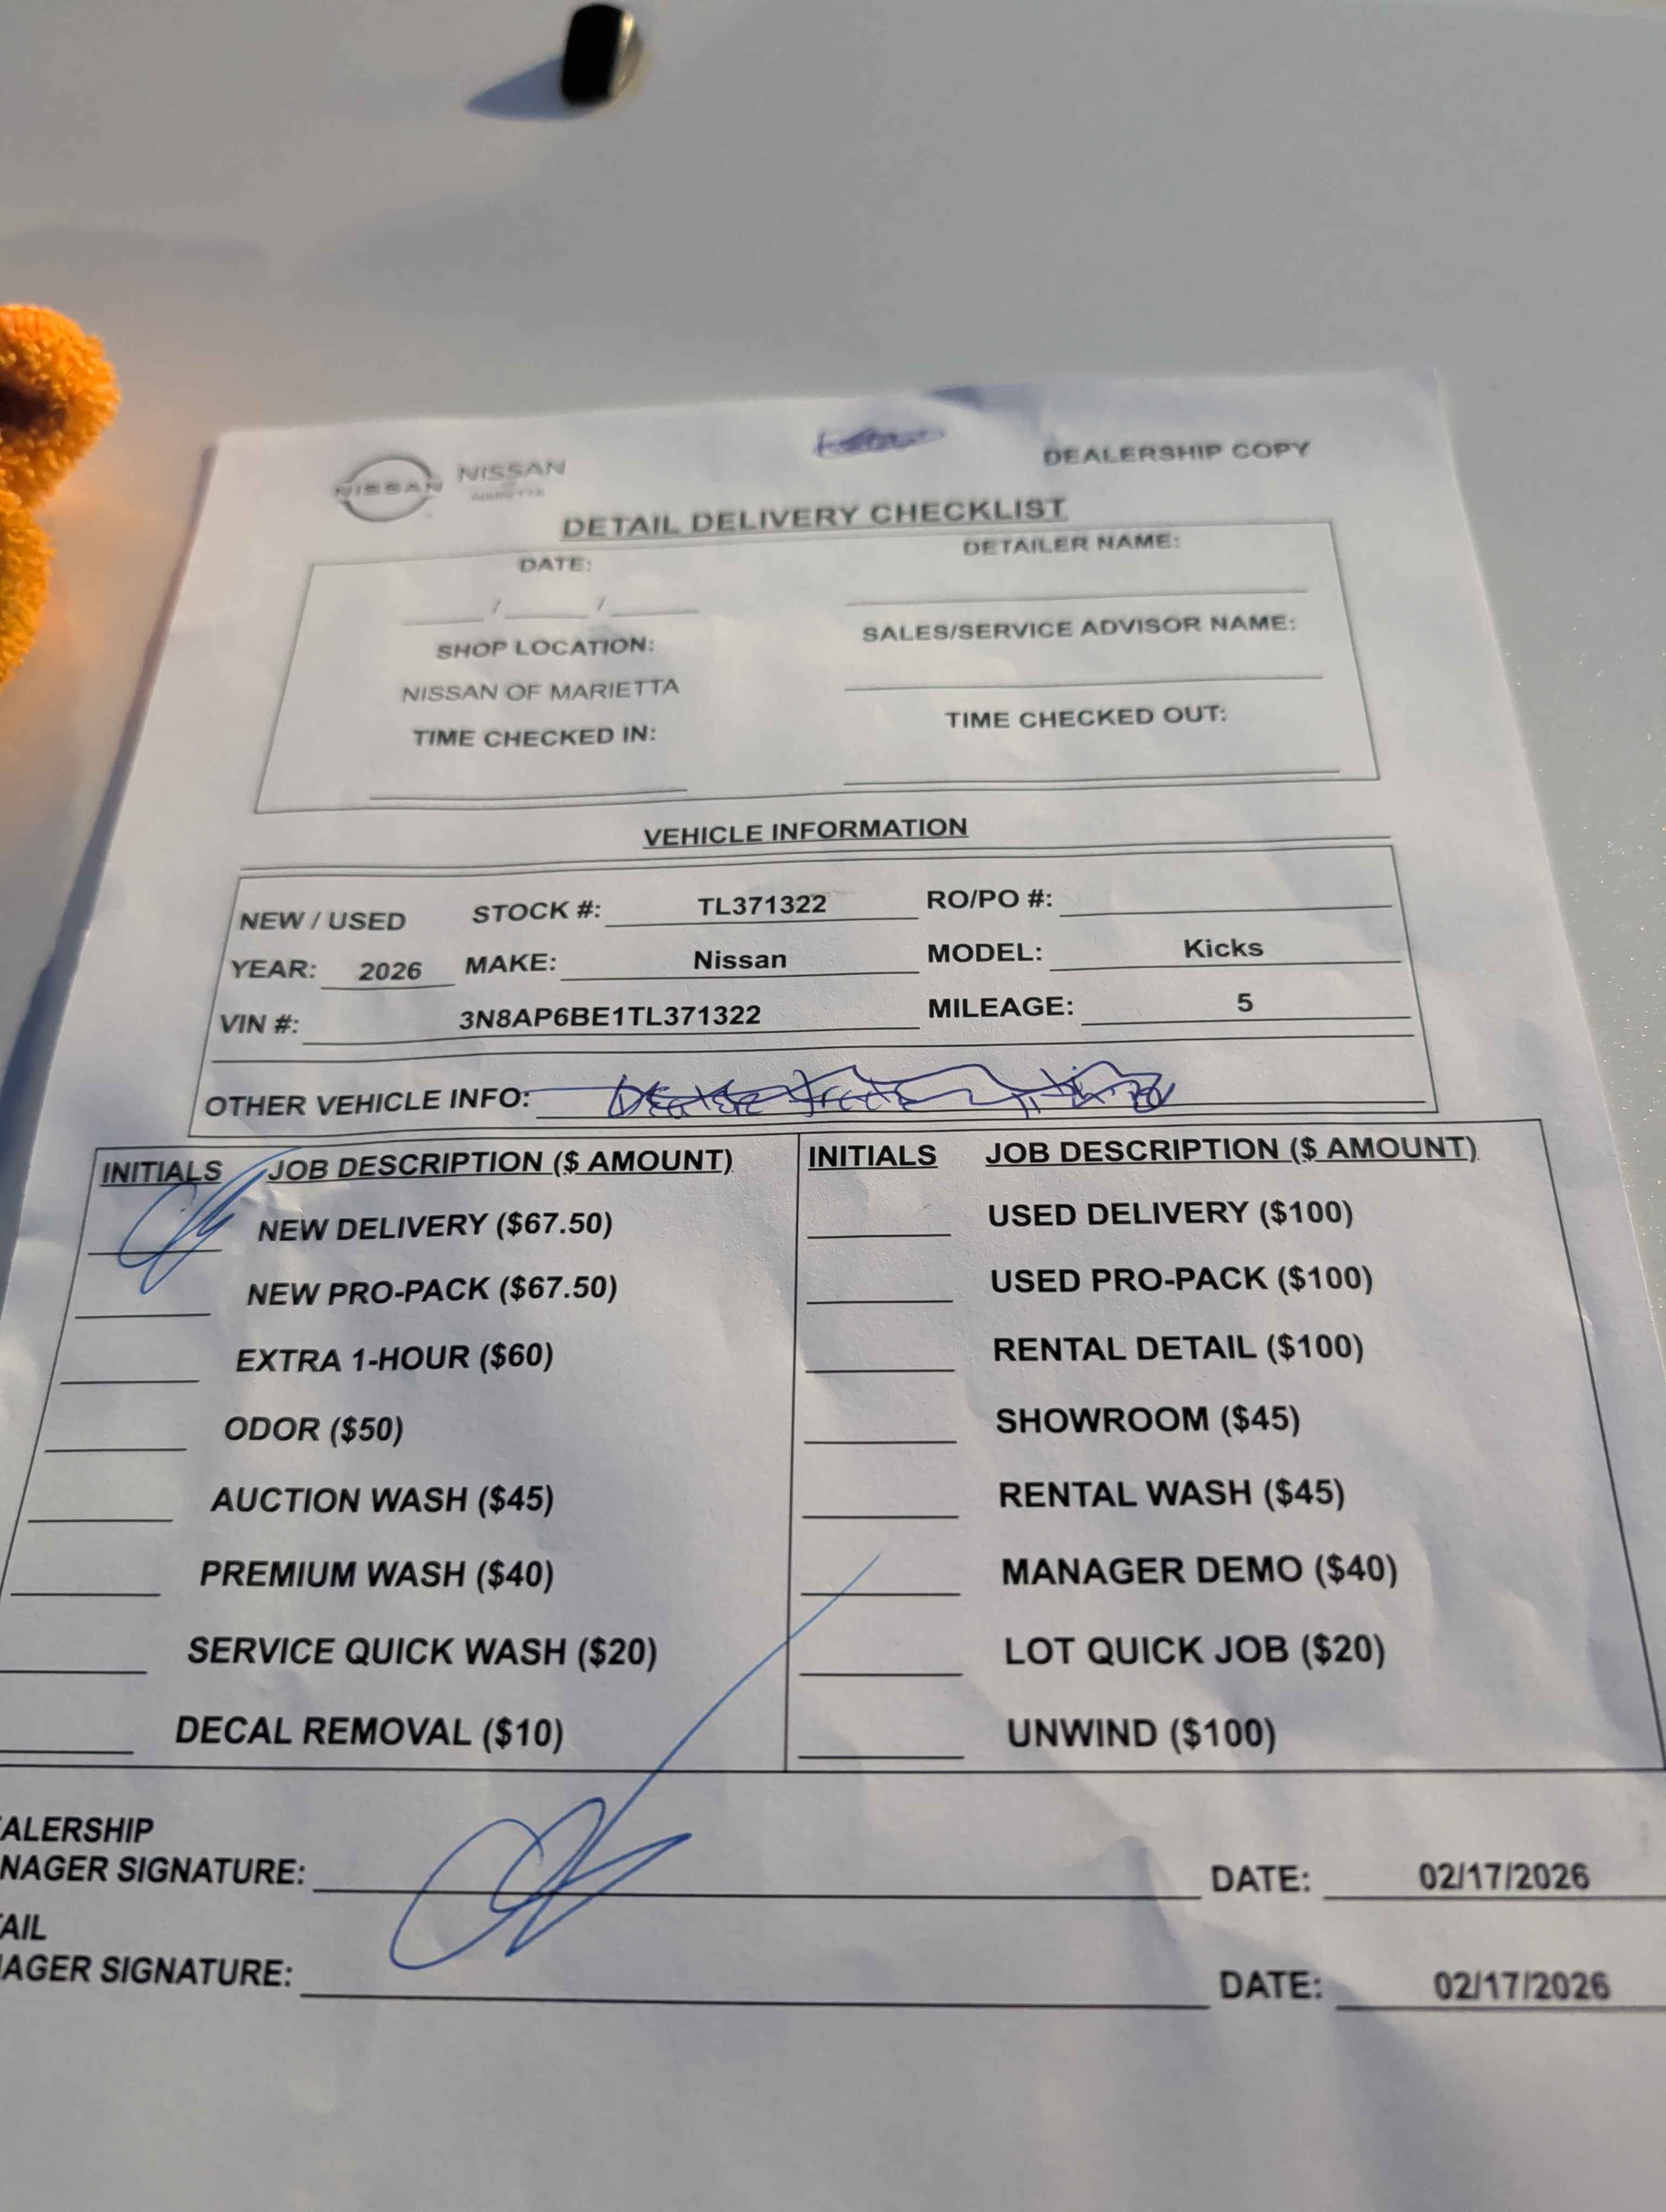 DEALERSHIP COPY
NISSAN NISSAN
OF
MARIETTA
DETAIL DELIVERY CHECKLIST
DATE: DETAILER NAME:
/ /
SALES/SERVICE ADVISOR NAME:
SHOP LOCATION:
NISSAN OF MARIETTA
TIME CHECKED IN: TIME CHECKED OUT:
VEHICLE INFORMATION
NEW / USED STOCK #: TL371322 RO/PO #:
YEAR: 2026 MAKE: Nissan MODEL: Kicks
VIN #: 3N8AP6BE1TL371322 MILEAGE: 5
OTHER VEHICLE INFO:
INITIALS JOB DESCRIPTION ($ AMOUNT) INITIALS JOB DESCRIPTION ($ AMOUNT)
NEW DELIVERY ($67.50) USED DELIVERY ($100)
NEW PRO-PACK ($67.50) USED PRO-PACK ($100)
EXTRA 1-HOUR ($60) RENTAL DETAIL ($100)
ODOR ($50) SHOWROOM ($45)
AUCTION WASH ($45) RENTAL WASH ($45)
PREMIUM WASH ($40) MANAGER DEMO ($40)
SERVICE QUICK WASH ($20) LOT QUICK JOB ($20)
DECAL REMOVAL ($10) UNWIND ($100)
EALERSHIP
NAGER SIGNATURE: DATE: 02/17/2026
AIL
AGER SIGNATURE: DATE: 02/17/2026